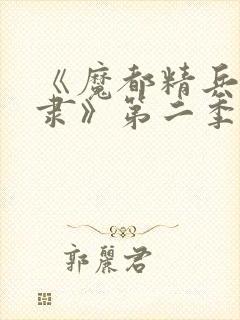 《魔都精兵
隶》第二季
郭丽君